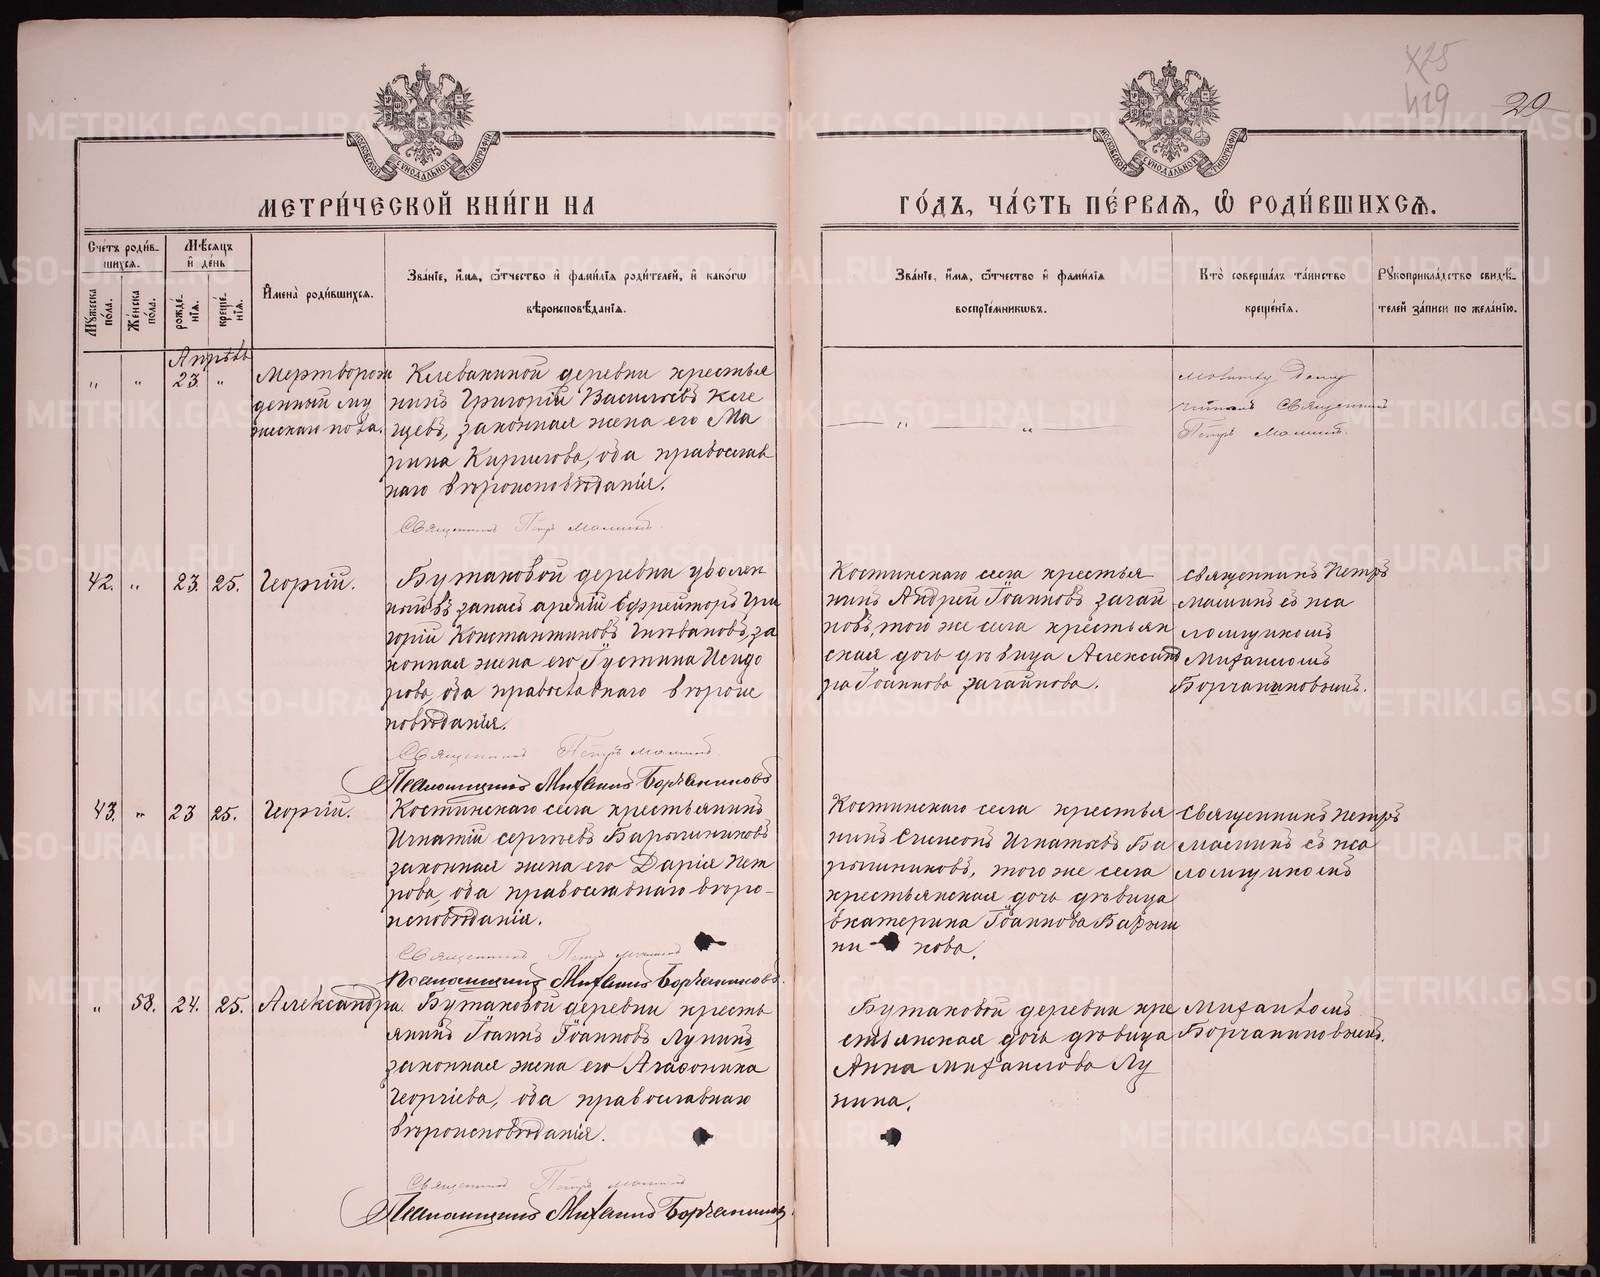 425
419
29
МОСКОВСКОЙ СѴНОДАЛЬНОЙ ТИПОГРАФІИ
МОСКОВСКОЙ СѴНОДАЛЬНОЙ ТИПОГРАФІИ
МЕТРИ́ЧЕСКОЙ КНИ́ГИ НА
ГО́ДЪ, ЧА́СТЬ ПЕ́РВАѦ, Ѡ҆ РОДИ́ВШИХСѦ.
Сче́тъ роди́в-
шихсѧ.
Мꙋ́жеска по́ла.
Же́нска по́ла.
Мѣ́сѧцъ
и҆ де́нь
рожде́-
нїѧ.
креще́-
нїѧ.
И҆мена̀ роди́вшихсѧ.
Зва́нїе, и҆́мѧ, ѻ҆́тчество и҆ фами́лїѧ роди́телей, и҆ како́гѡ
вѣроисповѣ́данїѧ.
Зва́нїе, и҆́мѧ, ѻ҆́тчество и҆ фами́лїѧ
воспрїе́мникѡвъ.
Кто̀ соверша́лъ та́инство
креще́нїѧ.
Рꙋкоприкла́дство свидѣ́-
телей за́писи по жела́нїю.
Апрѣль
„ „ 23 „
Мертворож
денный му
жескаго пола.
Клевакиной деревни крестья
нинъ Григорій Васильевъ Клe
щевъ, законная жена его Ма
рина Кирилова, оба православ
наго вѣроисповѣданія.
Священникъ Петръ Малинъ
„ „
Молитву Даку
читалъ Священникъ
Петръ Малинъ.
42. „ 23. 25. Георгій.
Бутаковой деревни уволен
ной въ запасъ арміи Ефрейторъ Гри
горій Константиновъ за
конная жена его Іустина Исидо
рова, оба православнаго вѣроис
повѣданія.
Священникъ Петръ Малинъ
Псаломщикъ Михаилъ Борчаниновъ
Костинскаго села крестья
нинъ Андрей Іоанновъ Загай
новъ, того же села крестьян
ская дочь дѣвица Александ
ра Іоаннова Загайнова.
Священникъ Петръ
Малинъ съ пса
ломщикомъ
Михаиломъ
Борчаниновымъ.
43. „ 23 25. Георгій.
Костинскаго села крестьянинъ
Игнатій Сергѣевъ Барышниковъ
законная жена его Дарія Пет
рова, оба православнаго вѣро-
исповѣданія.
Священникъ Петръ Малинъ
Псаломщикъ Михаилъ Борчаниновъ.
Костинскаго села крестья
нинъ Симеонъ Игнатьевъ Ба
рышниковъ, того же села
крестьянская дочь дѣвица
Екатерина Іоаннова Барыш
ни кова.
Священникъ Петръ
Малинъ съ пса
ломщикомъ
„ 58. 24. 25. Александра.
Бутаковой деревни кресть
янинъ Іоаннъ Іоанновъ Лунинъ
законная жена его Агафоника
Георгіева, оба православнаго
вѣроисповѣданія.
Священникъ Петръ Малинъ
Псаломщикъ Михаилъ Борчаниновъ
Бутаковой деревни кре
стьянская дочь дѣвица
Анна Михаилова Лу
нина.
Михаиломъ
Борчаниновымъ.
METRIKI.GASO-URAL.RU